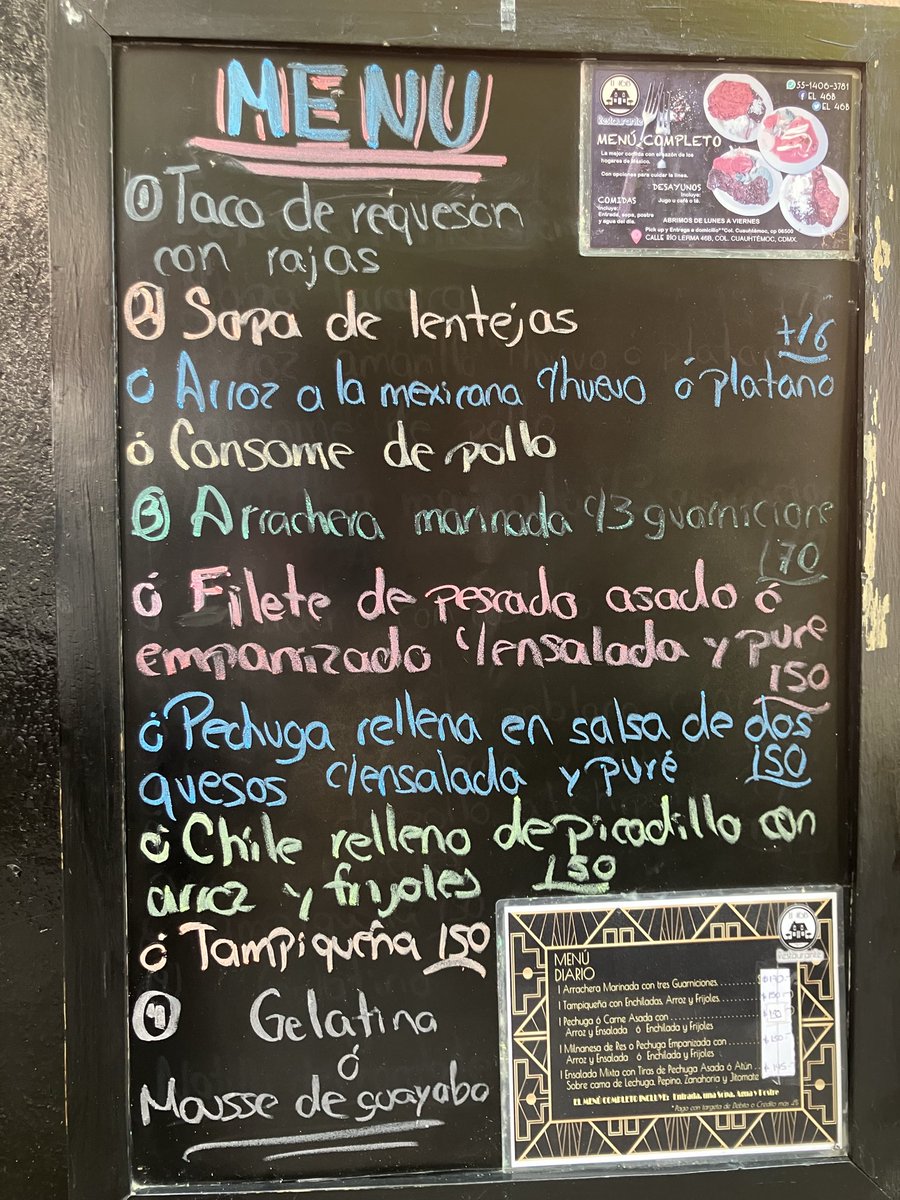 MENU
① Taco de requesón
con rajas
② Sopa de lentejas
+16
ó Arroz a la mexicana c/huevo ó platano
ó Consome de pollo
③ Arrachera marinada c/3 guarnicione
170
ó Filete de pescado asado ó
empanizado c/ensalada y pure
150
ó Pechuga rellena en salsa de dos
quesos c/ensalada y puré 150
ó Chile relleno de picadillo con
arroz y frijoles 150
ó Tampiqueña 150
④ Gelatina
ó
Mousse de guayabo
Restaurante
55-1406-3781
EL 46B
EL 46B
MENÚ COMPLETO
La mejor comida con el sazón de los
hogares de México.
Con opciones para cuidar la línea.
DESAYUNOS
Incluye:
Jugo u café o té.
COMIDAS
Incluye:
Entrada, sopa, postre
y agua del día.
ABRIMOS DE LUNES A VIERNES
Pick up y Entrega a domicilio**Col. Cuauhtémoc, cp 06500
CALLE RÍO LERMA 46B, COL. CUAUHTÉMOC, CDMX.
Restaurante
MENÚ
DIARIO
1 Arrachera Marinada con tres Guarniciones. $170.-
1 Tampiqueña con Enchiladas, Arroz y Frijoles. $150.-
1 Pechuga ó Carne Asada con $150
Arroz y Ensalada ó Enchilada y Frijoles
1 Milnanesa de Res o Pechuga Empanizada con $150.-
Arroz y Ensalada ó Enchilada y Frijoles
1 Ensalada Mixta con Tiras de Pechuga Asada ó Atún $145.-
Sobre cama de Lechuga, Pepino, Zanahoria y Jitomate
EL MENÚ COMPLETO INCLUYE: Entrada, una Sopa, Agua y Postre
*Pago con targeta de Debito o Credito más 4%